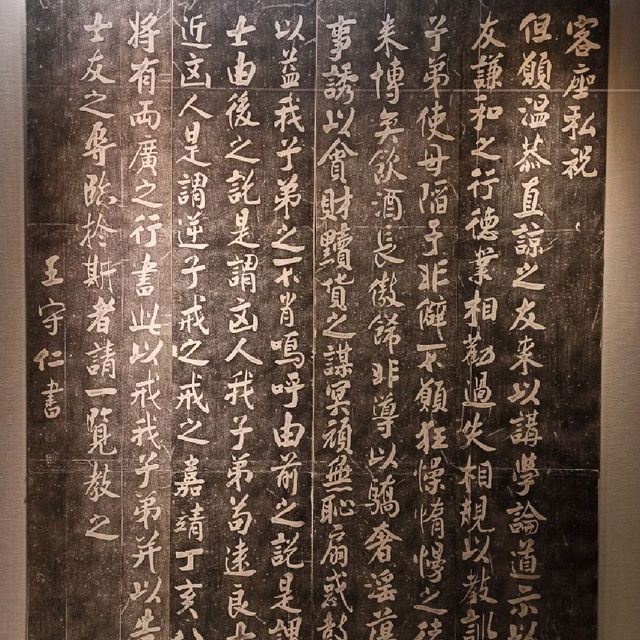 客座私祝
但願溫恭直諒之友来以講學論道示以
友謙和之行德業相勸過失相規以教訓
子弟使毋陷于非僻不願狂懆惰慢之徒
来博奕飲酒長傲餙非導以驕奢淫蕩
事誘以貪財黷貨之謀冥頑無恥扇惑鼓
以益我子弟之不肖嗚呼由前之說是謂
士由後之說是謂凶人我子弟苟遠良士
近凶人是謂逆子戒之戒之嘉靖丁亥八
將有兩廣之行書此以戒我子弟并以告
士友之辱臨於斯者請一覽教之
王守仁書